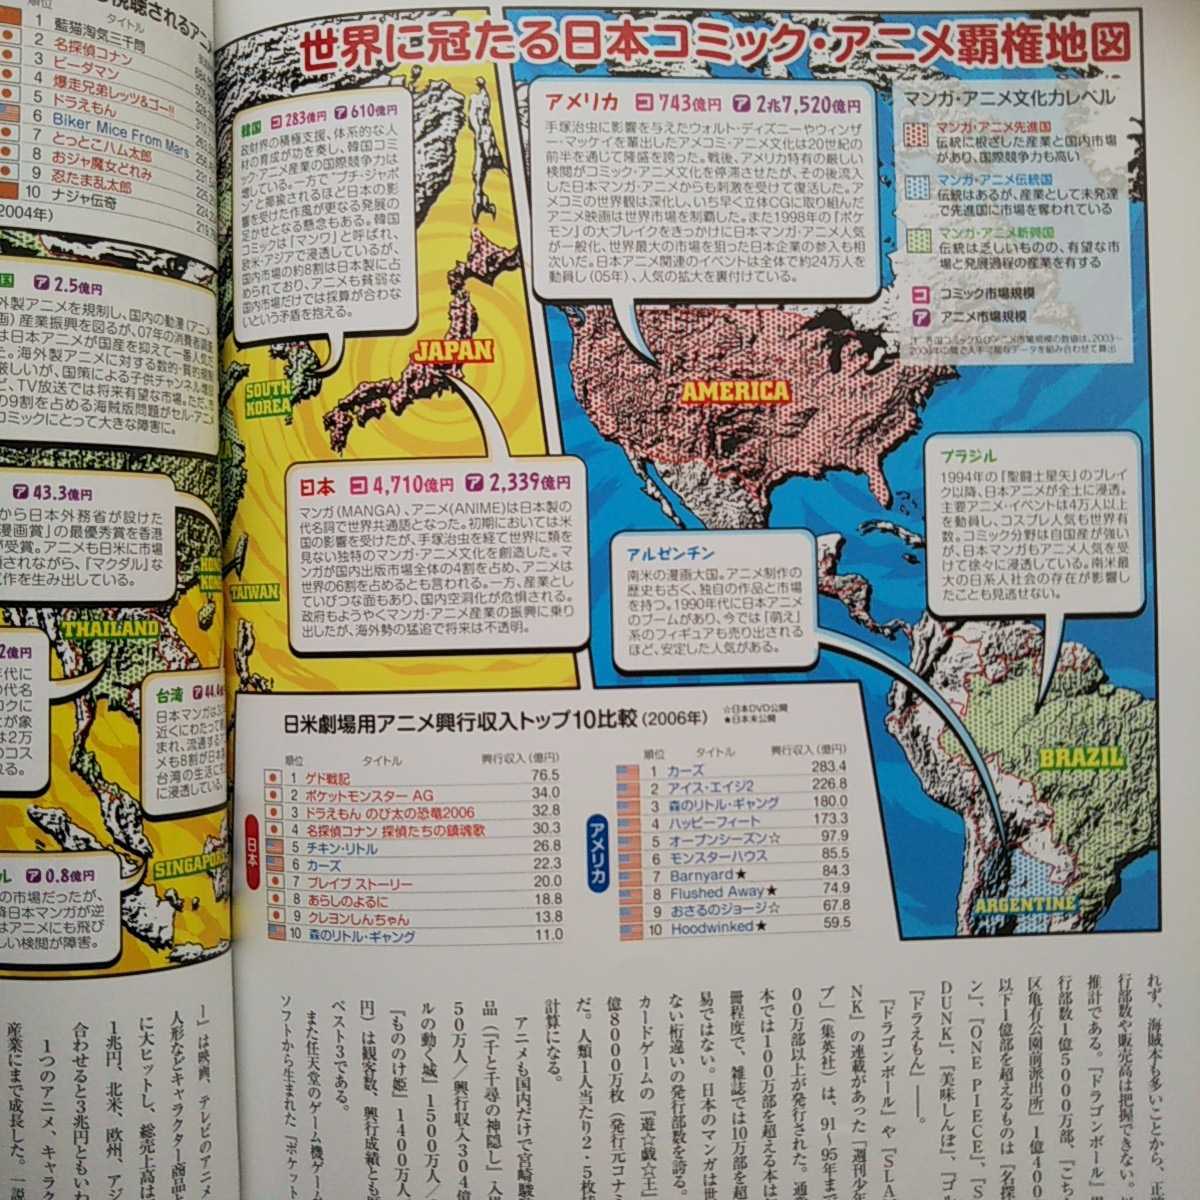 世界に冠たる日本コミック・アニメ覇権地図
視聴されるアニメ
順位 タイトル
1 藍猫淘気三千問
2 名探偵コナン
3 ビーダマン
4 爆走兄弟レッツ&ゴー!!
5 ドラえもん
6 Biker Mice From Mars
7 とっとこハム太郎
8 おジャ魔女どれみ
9 忍たま乱太郎
10 ナジャ伝奇
2004年)
韓国 コ 283億円 ア 610億円
政財界の積極支援、体系的な人
材の育成が功を奏し、韓国コミ
ック・アニメ産業の国際競争力は
増している。一方で“プチ・ジャポ
ン”と揶揄されるほど日本の影
響を受けた作風が更なる発展の
足かせとなる懸念もある。韓国
コミックは「マンワ」と呼ばれ、
欧米・アジアで浸透しているが、
国内市場の約8割は日本製に占
められており、アニメも貧弱な
国内市場だけでは採算が合わな
いという矛盾を抱える。
アメリカ コ 743億円 ア 2兆7,520億円
手塚治虫に影響を与えたウォルト・ディズニーやウィンザ
ー・マッケイを輩出したアメコミ・アニメ文化は20世紀の
前半を通じて隆盛を誇った。戦後、アメリカ特有の厳しい
検閲がコミック・アニメ文化を停滞させたが、その後流入
した日本マンガ・アニメからも刺激を受けて復活した。ア
メコミの世界観は深化し、いち早く立体CGに取り組んだ
アニメ映画は世界市場を制覇した。また1998年の『ポケ
モン』の大ブレイクをきっかけに日本マンガ・アニメ人気
が一般化、世界最大の市場を狙った日本企業の参入も相
次いだ。日本アニメ関連のイベントは全体で約24万人を
動員し(05年)、人気の拡大を裏付けている。
マンガ・アニメ文化力レベル
マンガ・アニメ先進国
伝統に根ざした産業と国内市場
があり、国際競争力も高い
マンガ・アニメ伝統国
伝統はあるが、産業として未発達
で先進国に市場を奪われている
マンガ・アニメ新興国
伝統は乏しいものの、有望な市
場と発展過程の産業を有する
コ コミック市場規模
ア アニメ市場規模
JAPAN
SOUTH
KOREA
AMERICA
国 ア 2.5億円
外製アニメを規制し、国内の動漫(アニメ
画)産業振興を図るが、07年の消費者調査
は日本アニメが国産を抑えて一番人気だ
た。海外製アニメに対する数的・質的規制
厳しいが、国策による子供チャンネル増設
ど、TV放送では将来有望な市場。ただ、
の9割を占める海賊版問題がセル・アニメ
コミックにとって大きな障害に。
日本 コ 4,710億円 ア 2,339億円
マンガ(MANGA)、アニメ(ANIME)は日本製の
代名詞で世界共通語となった。初期においては米
国の影響を受けたが、手塚治虫を経て世界に類を
見ない独特のマンガ・アニメ文化を創造した。マ
ンガが国内出版市場全体の4割を占め、アニメは
世界の6割を占めるとも言われる。一方、産業とし
ていびつな面もあり、国内空洞化が危惧される。
政府もようやくマンガ・アニメ産業の振興に乗り
出したが、海外勢の猛追で将来は不透明。
ブラジル
1994年の『聖闘士星矢』のブレイ
ク以降、日本アニメが全土に浸透。
主要アニメ・イベントは4万人以上
を動員し、コスプレ人気も世界有
数。コミック分野は自国産が強い
が、日本マンガもアニメ人気を受
けて徐々に浸透している。南米最
大の日系人社会の存在が影響し
たことも見逃せない。
アルゼンチン
南米の漫画大国。アニメ制作の
歴史も古く、独自の作品と市場
を持つ。1990年代に日本アニメ
のブームがあり、今では「萌え」
系のフィギュアも売り出される
ほど、安定した人気がある。
ア 43.3億円
から日本外務省が設けた
漫画賞」の最優秀賞を香港
が受賞。アニメも日米に市場
されながら、『マクダル』な
作を生み出している。
HONG
KONG
TAIWAN
THAILAND
台湾 ア 44.4
SINGAPORE
BRAZIL
ARGENTINE
ル ア 0.8億円
の市場だったが、
降日本マンガが逆
はアニメにも飛び
しい検閲が障害。
日米劇場用アニメ興行収入トップ10比較(2006年) ☆日本DVD公開
★日本未公開
日本
順位 タイトル 興行収入(億円)
1 ゲド戦記 76.5
2 ポケットモンスター AG 34.0
3 ドラえもん のび太の恐竜2006 32.8
4 名探偵コナン 探偵たちの鎮魂歌 30.3
5 チキン・リトル 26.8
6 カーズ 22.3
7 ブレイブ ストーリー 20.0
8 あらしのよるに 18.8
9 クレヨンしんちゃん 13.8
10 森のリトル・ギャング 11.0
アメリカ
順位 タイトル 興行収入(億円)
1 カーズ 283.4
2 アイス・エイジ2 226.8
3 森のリトル・ギャング 180.0
4 ハッピーフィート 173.3
5 オープンシーズン☆ 97.9
6 モンスターハウス 85.5
7 Barnyard★ 84.3
8 Flushed Away★ 74.9
9 おさるのジョージ☆ 67.8
10 Hoodwinked★ 59.5
れず、海賊本も多いことから、正
行部数や販売高は把握できない。
推計である。『ドラゴンボール』
行部数1億5000万部、『こち
区亀有公園前派出所』1億400
以下1億部を超えるものは『名探
ン』、『ONE PIECE』、『S
DUNK』、『美味しんぼ』、『ゴル
『ドラえもん』——。
『ドラゴンボール』や『SLA
NK』の連載があった『週刊少年
プ』(集英社)は、91〜95年まで
00万部以上が発行された。通常
本では100万部を超える本は
冊程度で、雑誌では10万部を超
易ではない。日本のマンガは世
ない桁違いの発行部数を誇る。
カードゲームの『遊☆戯☆王』
億8000万枚(発行元コナミ
だ。人類1人当たり2・5枚
計算になる。
アニメも国内だけで宮崎駿
品(『千と千尋の神隠し』入場
50万人/興行収入304億
ルの動く城』1500万人/
『もののけ姫』1400万人
円)は観客数、興行成績とも歴
ベスト3である。
また任天堂のゲーム機ゲー
ソフトから生まれた『ポケット
ー』は映画、テレビのアニメ
人形などキャラクター商品と
に大ヒットし、総売上高は
1兆円、北米、欧州、アジ
合わせると3兆円ともいわ
1つのアニメ、キャラク
産業にまで成長した。一説